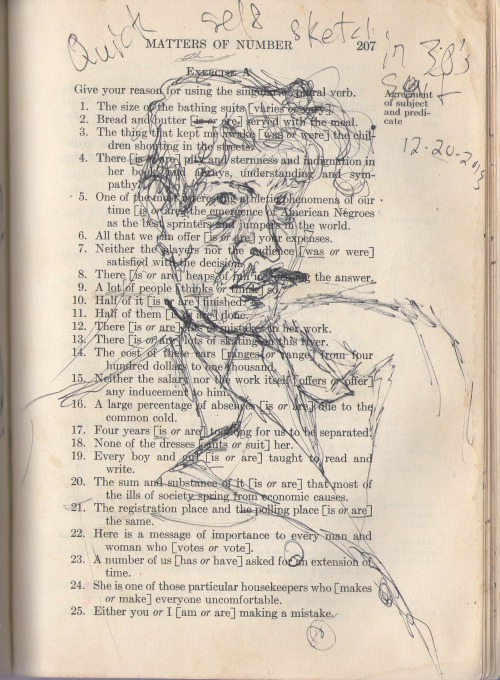 Quick self sketch
in
MATTERS OF NUMBER 207
EXERCISE A
Give your reason for using the singular or plural verb.
Agreement
of subject
and predi-
cate
12-20-2013
1. The size of the bathing suits [varies or vary].
2. Bread and butter [is or are] served with the meal.
3. The thing that kept me awake [was or were] the chil-
dren shouting in the streets.
4. There [is or are] pity and sternness and indignation in
her book and always, understanding and sym-
pathy.
5. One of the most interesting athletic phenomena of our
time [is or are] the emergence of American Negroes
as the best sprinters and jumpers in the world.
6. All that we can offer [is or are] your expenses.
7. Neither the players nor the audience [was or were]
satisfied with the decision.
8. There [is or are] heaps of fun in guessing the answer.
9. A lot of people [thinks or think] so.
10. Half of it [is or are] finished.
11. Half of them [is or are] done.
12. There [is or are] lots of mistakes in her work.
13. There [is or are] lots of skating on this river.
14. The cost of these cars [ranges or range] from four
hundred dollars to one thousand.
15. Neither the salary nor the work itself [offers or offer]
any inducement to him.
16. A large percentage of absences [is or are] due to the
common cold.
17. Four years [is or are] too long for us to be separated.
18. None of the dresses [suits or suit] her.
19. Every boy and girl [is or are] taught to read and
write.
20. The sum and substance of it [is or are] that most of
the ills of society spring from economic causes.
21. The registration place and the polling place [is or are]
the same.
22. Here is a message of importance to every man and
woman who [votes or vote].
23. A number of us [has or have] asked for an extension of
time.
24. She is one of those particular housekeepers who [makes
or make] everyone uncomfortable.
25. Either you or I [am or are] making a mistake.